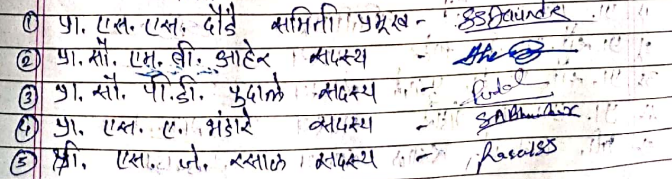 ① प्रा. एस. एस. दौंडे समिती प्रमुख - SSDaunde
② प्रा. सौ. एम. बी. आहेर सदस्य -
③ प्रा. सौ. पी. डी. पुदाले सदस्य - Pudal
④ प्रा. एस. ए. भंडारे सदस्य - SABhandare
⑤ श्री. एस. जे. रसाळ सदस्य - RasalSJ